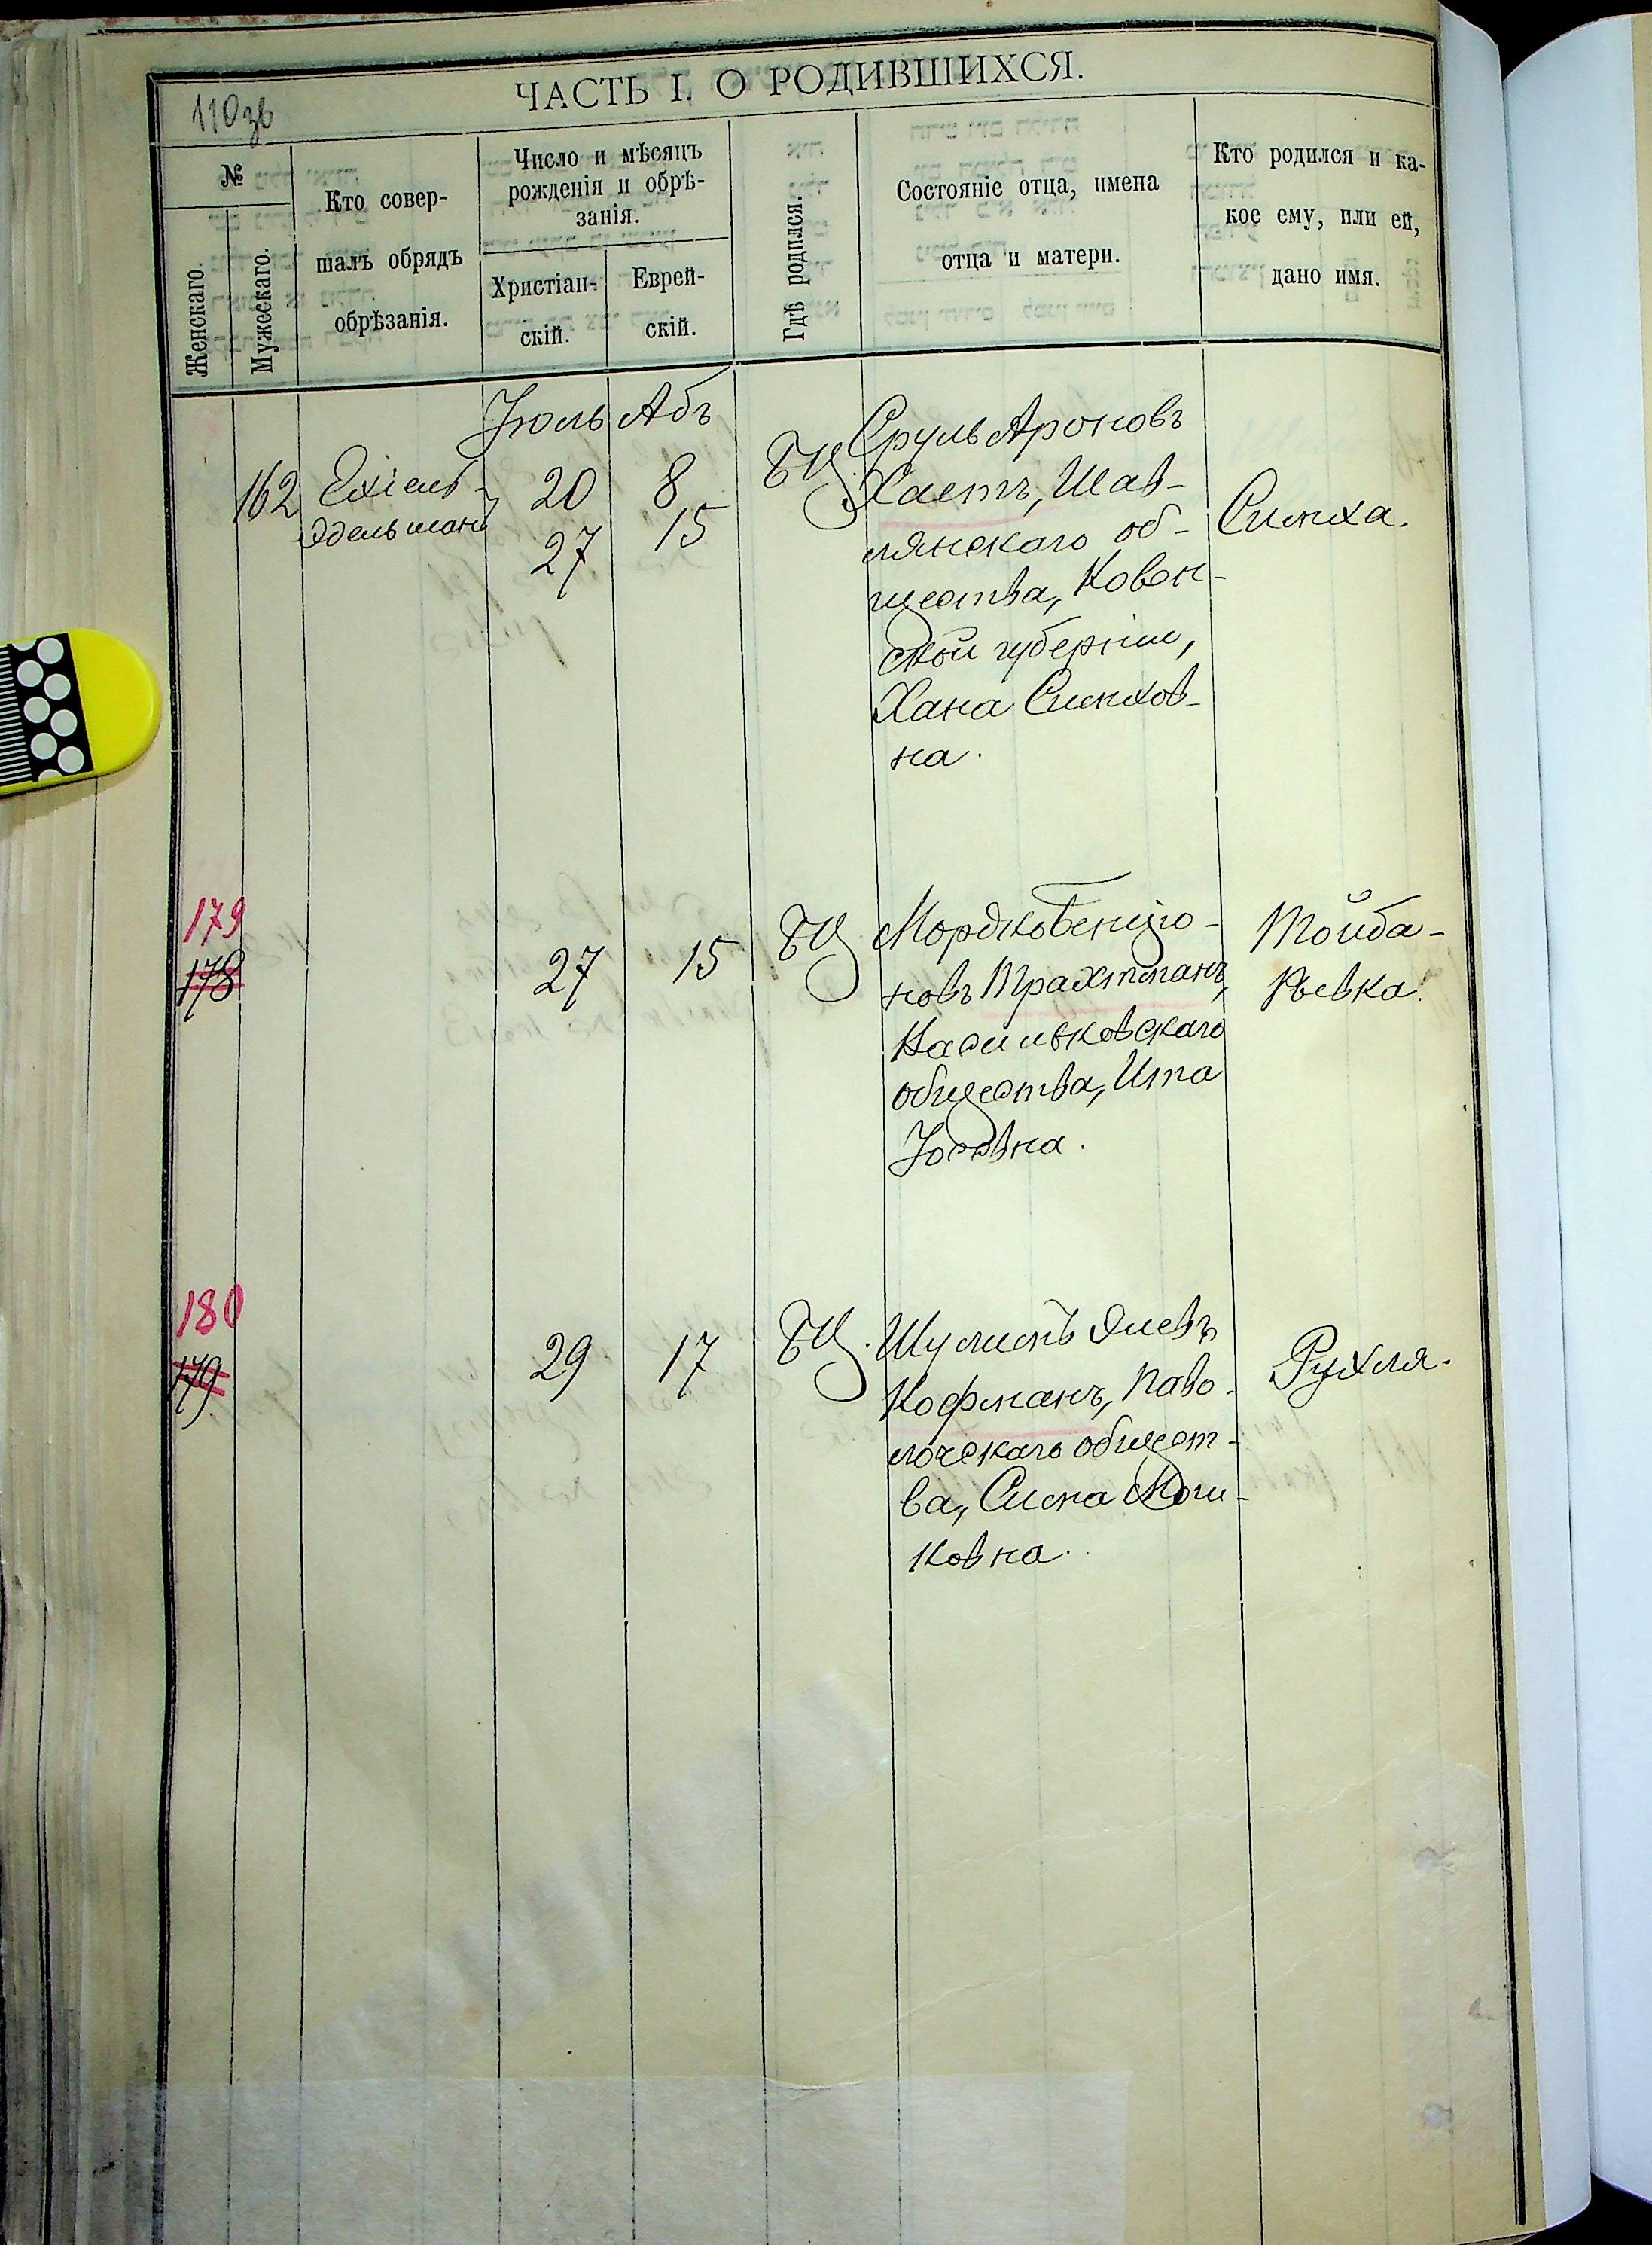 110зв
ЧАСТЬ I. О РОДИВШИХСЯ.
№
Женскаго.
Мужескаго.
Кто совер-
шалъ обрядъ
обрѣзанія.
Число и мѣсяцъ
рожденія и обрѣ-
занія.
Христіан-
скій.
Еврей-
скій.
Гдѣ родился.
Состояніе отца, имена
отца и матери.
Кто родился и ка-
кое ему, или ей,
дано имя.
Іюль Абъ
162 Ехіель
Эдельманъ
20 8
27 15
БЦ.
Сруль Ароновъ
Хаетъ, Шав-
лянскаго об-
щества, Ковен-
ской губерніи,
Хана Симхов-
на.
Симха.
179
178
27 15 БЦ
Мордко Бенціо-
новъ Трахтманъ,
Васильковскаго
общества, Ита
Іосевна.
Тойба-
Ривка.
180
179
29 17 БЦ.
Шулимъ
Кофманъ, Паво-
лочскаго общест-
ва, Сима Мош-
ковна.
Рухля.